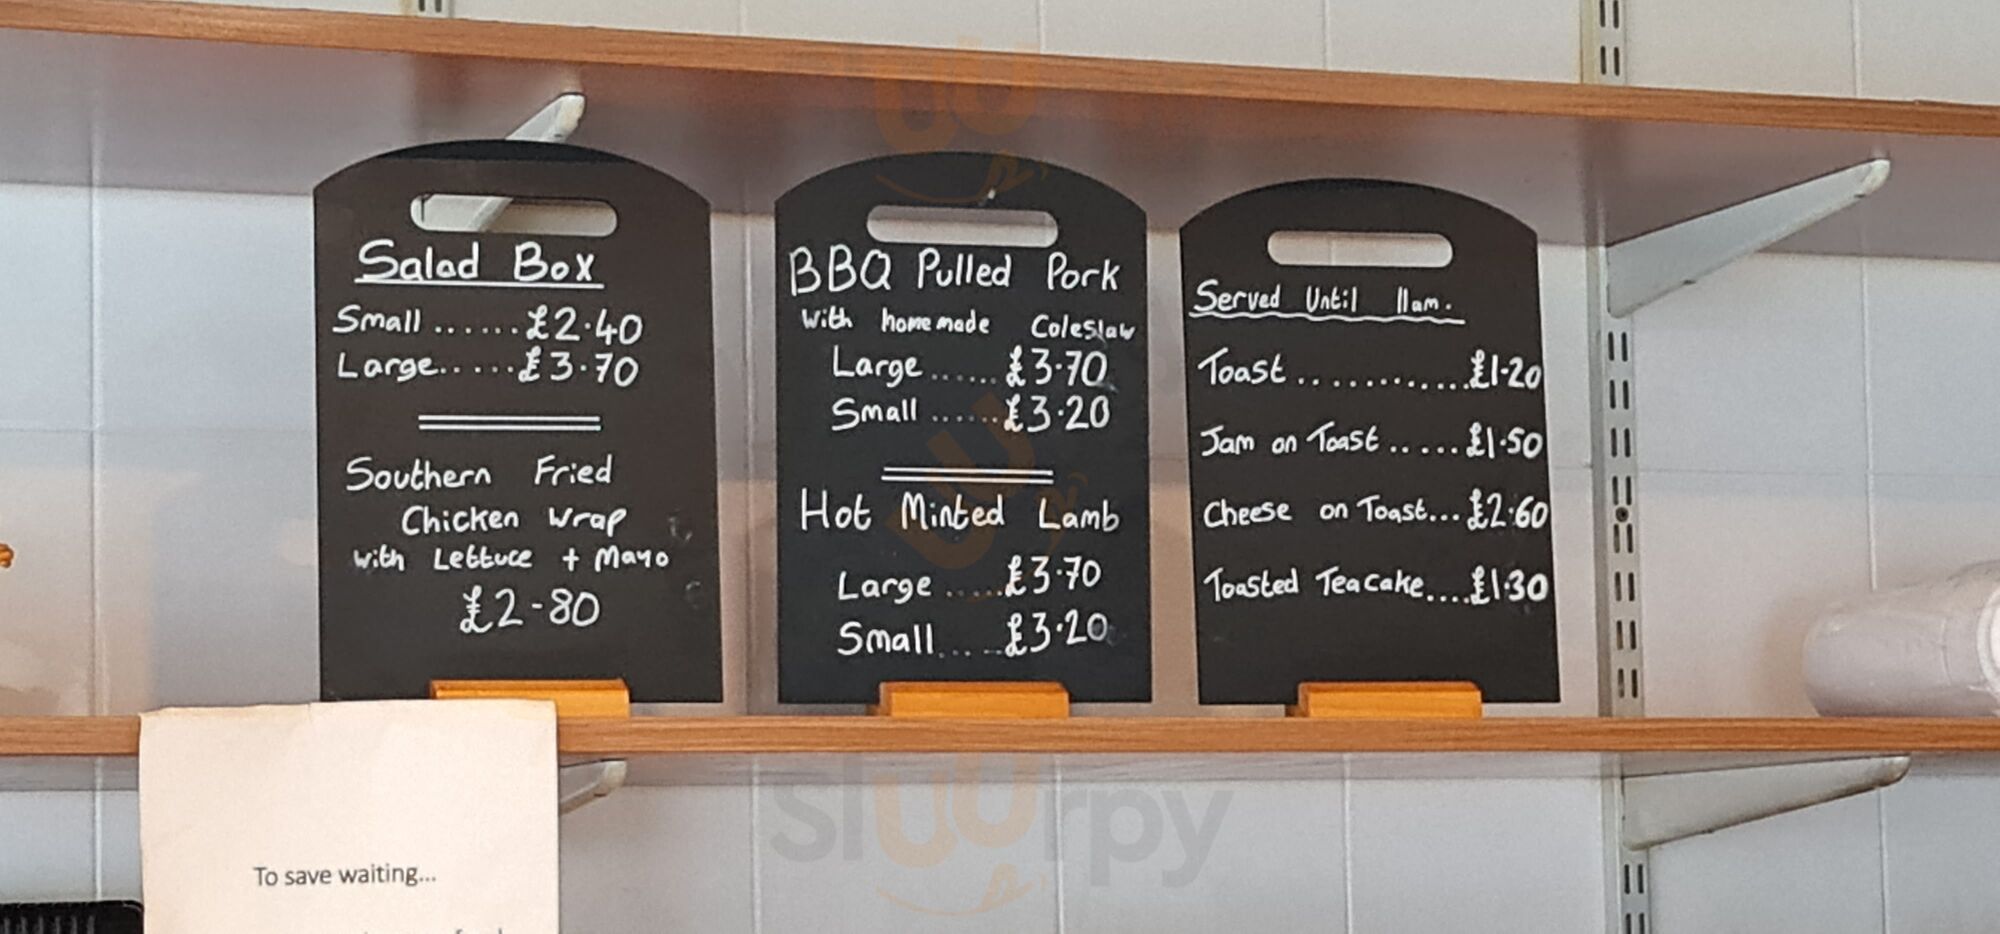 Salad Box
Small ...... £2.40
Large ...... £3.70
Southern Fried
Chicken Wrap
with Lettuce + Mayo
£2-80
BBQ Pulled Pork
with homemade Coleslaw
Large ...... £3.70
Small ...... £3.20
Hot Minted Lamb
Large ..... £3.70
Small .... £3.20
Served Until 11am.
Toast ............ £1.20
Jam on Toast ..... £1.50
Cheese on Toast... £2.60
Toasted Teacake.... £1.30
To save waiting...
Sluurpy